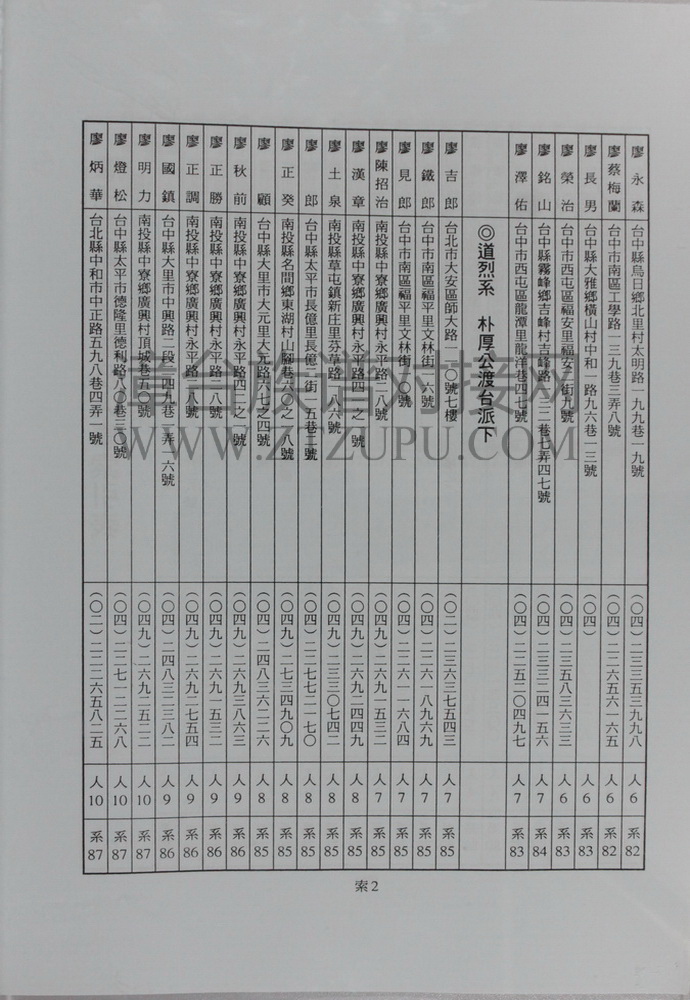 廖永森 台中縣烏日鄉北里村太明路一九九巷一九號 (〇四)二三三五三九九八 人6 系82
廖蔡梅蘭 台中市南區工學路一三九巷三弄八號 (〇四)二二六五六一六五 人6 系82
廖長男 台中縣大雅鄉橫山村中和一路九六巷一三號 (〇四) 人6 系83
廖榮治 台中市西屯區福安里福安一街九號 (〇四)二三五八三六三三 人6 系83
廖銘山 台中縣霧峰鄉吉峰村吉峰路 巷七弄四七號 (〇四)二三三二四一五六 人7 系84
廖澤佑 台中市西屯區龍潭里龍洋巷四七號 (〇四)二二五二〇四九七 人7 系83
◎道烈系 朴厚公渡台派下
廖吉郎 台北市大安區師大路一二〇號七樓 (〇二)二三六三七五四三 人7 系85
廖鐵郎 台中市南區福平里文林街一六號 (〇四)二二六一八九六九 人7 系85
廖見郎 台中市南區福平里文林街 號 (〇四)二二六一一六八四 人7 系85
陳招治 南投縣中寮鄉廣興村永平路二八號 (〇四九)二六九一五三二 人7 系85
廖漢章 南投縣中寮鄉廣興村永平路四二之一號 (〇四九)二六九二四四九 人8 系85
廖土泉 南投縣草屯鎮新庄里芬草路一八六號 (〇四九)二三三〇七四二 人8 系85
廖郎 台中縣太平市長億里長億二街一五巷二號 (〇四)二二七七二一七〇 人8 系85
廖正癸 南投縣名間鄉東湖村山腳巷六〇之一八號 (〇四九)二七三四九〇九 人8 系85
廖顧 台中縣大里市大元里大元路六七之四號 (〇四)二四八三六二二六 人8 系85
廖秋前 南投縣中寮鄉廣興村永平路四二之一號 (〇四九)二六九三八六三 人9 系86
廖正勝 南投縣中寮鄉廣興村永平路二八號 (〇四九)二六九一五三二 人9 系86
廖正調 南投縣中寮鄉廣興村永平路八號 (〇四九)二六九二七五四 人9 系86
廖國鎮 台中縣大里市中興路二段一四九巷一弄一六號 (〇四)二四八三二三八二 人9 系86
廖明力 南投縣中寮鄉廣興村頂城巷五〇號 (〇四九)二六九二五二二 人10 系87
廖燈松 台中縣太平市德隆里德利路八〇巷三〇號 (〇四)二二七一二二六八 人10 系87
廖炳華 台北縣中和市中正路五九八巷四弄一號 (〇二)二三二六五八二五 人10 系87
索2
WWW.ZTZUPU.COM